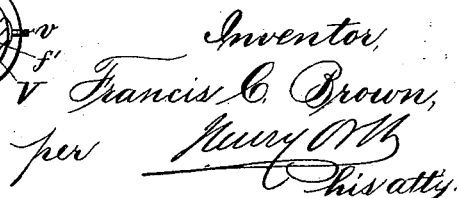 v
f'
V
Inventor,
Francis C. Brown,
per Henry
his atty.